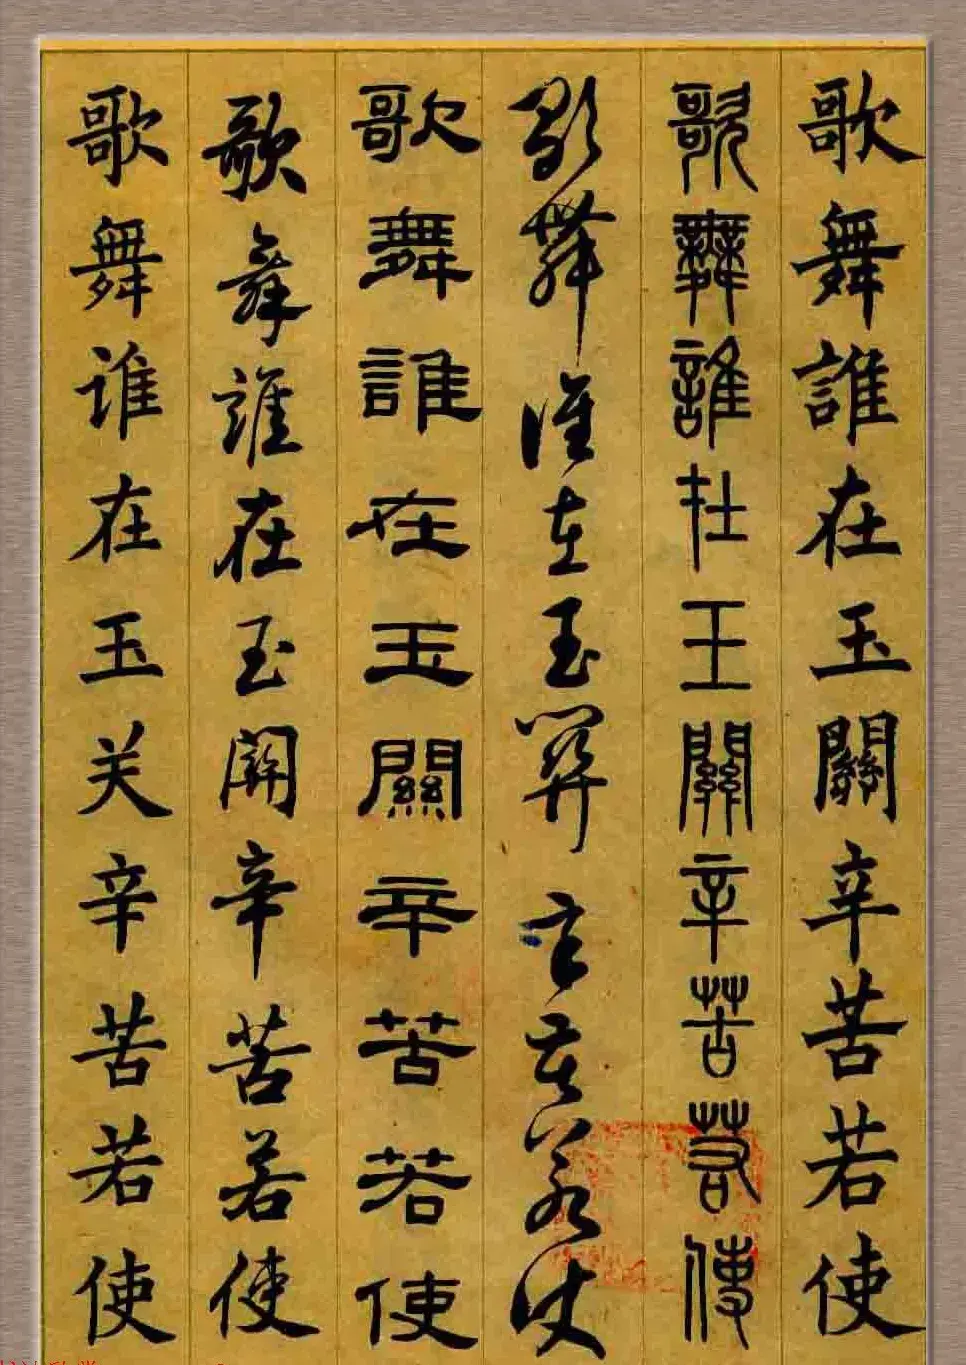 歌舞誰在玉關辛苦若使
歌舞誰在玉關辛苦若使
歌舞誰在玉關辛苦若使
歌舞誰在玉關辛苦若使
歌舞誰在玉關辛苦若使
歌舞谁在玉关辛苦若使